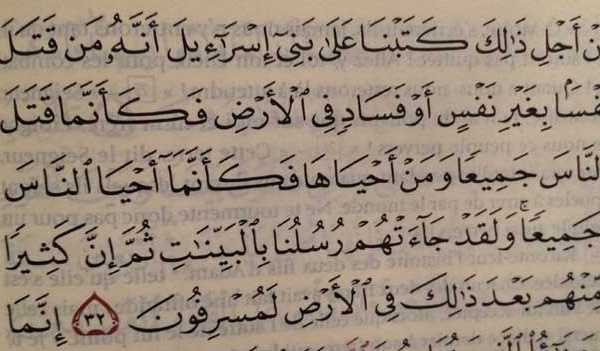 مِنْ أَجْلِ ذَٰلِكَ كَتَبْنَا عَلَىٰ بَنِىٓ إِسْرَٰٓءِيلَ أَنَّهُۥ مَن قَتَلَ
نَفْسًۢا بِغَيْرِ نَفْسٍ أَوْ فَسَادٍۢ فِى ٱلْأَرْضِ فَكَأَنَّمَا قَتَلَ
ٱلنَّاسَ جَمِيعًا وَمَنْ أَحْيَاهَا فَكَأَنَّمَآ أَحْيَا ٱلنَّاسَ
جَمِيعًا ۚ وَلَقَدْ جَآءَتْهُمْ رُسُلُنَا بِٱلْبَيِّنَٰتِ ثُمَّ إِنَّ كَثِيرًا
مِّنْهُم بَعْدَ ذَٰلِكَ فِى ٱلْأَرْضِ لَمُسْرِفُونَ ٣٢ إِنَّمَا